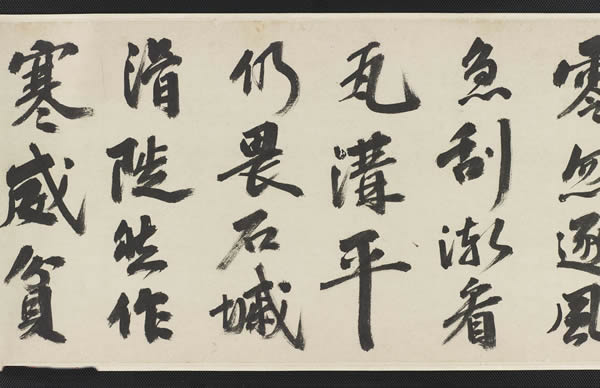 零忽逐風
急刮漸看
瓦溝平
仍畏石墄
滑陡然作
寒威貧